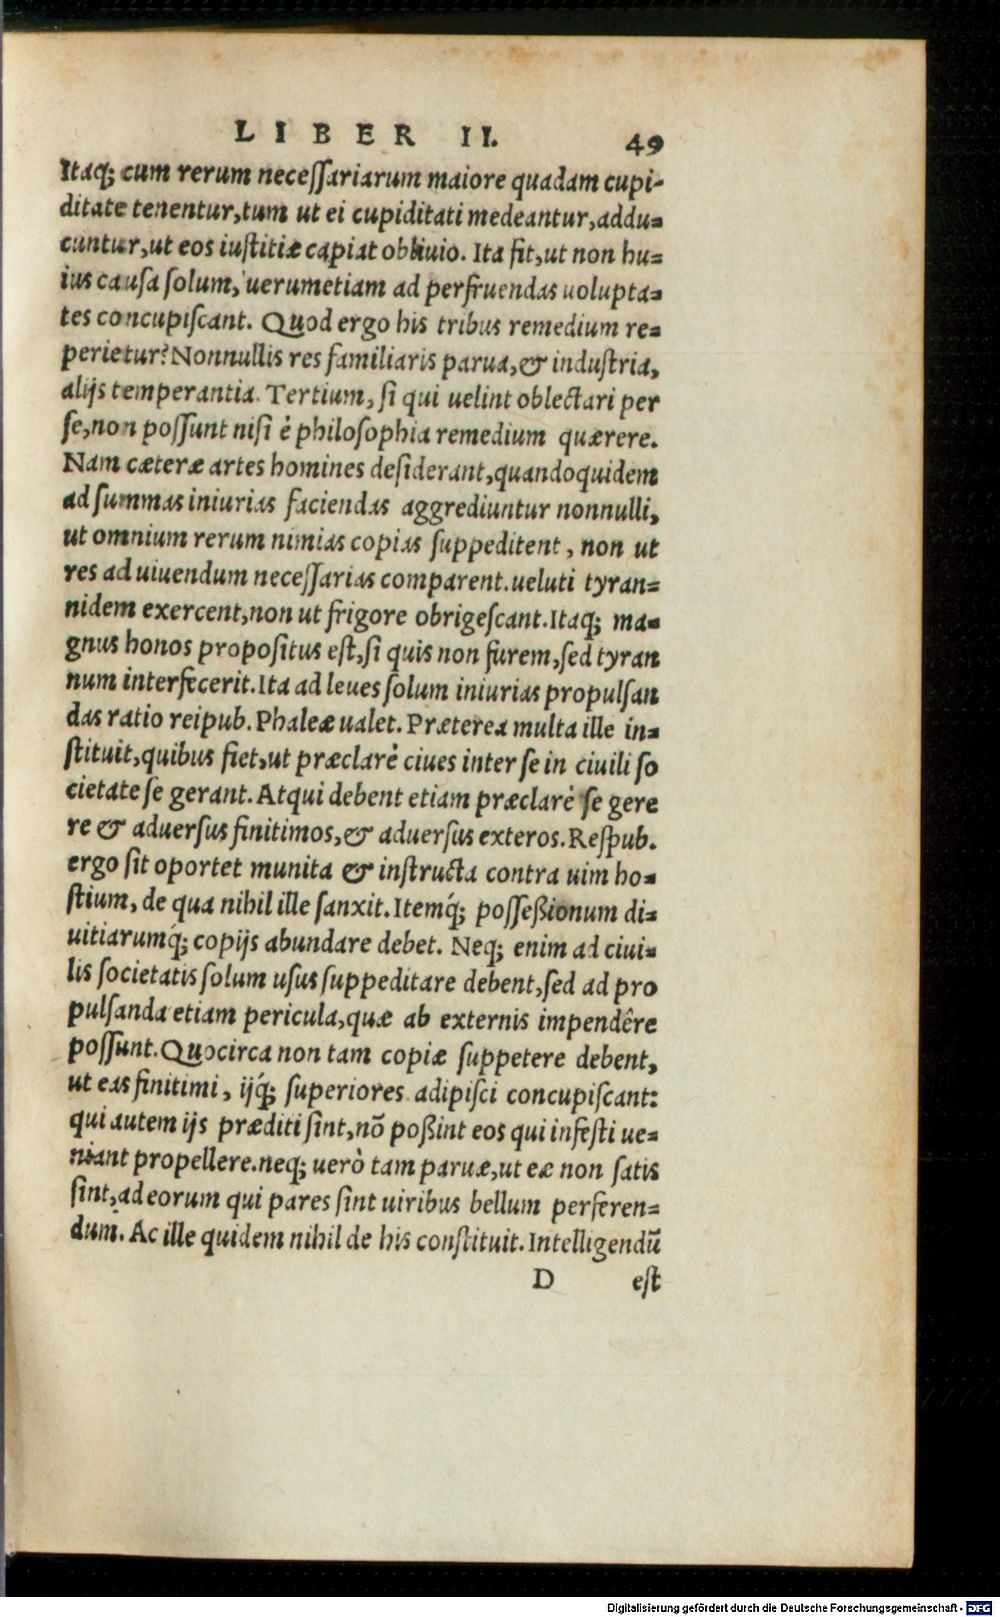 LIBER II. 49
Itaq; cum rerum necessariarum maiore quadam cupi-
ditate tenentur, tum ut ei cupiditati medeantur, addu-
cuntur, ut eos iustitiæ capiat obliuio. Ita fit, ut non hu-
ius causa solum, uerumetiam ad perfruendas uolupta-
tes concupiscant. Quod ergo his tribus remedium re-
perietur? Nonnullis res familiaris parua, & industria,
alijs temperantia. Tertium, si qui uelint oblectari per
se, non possunt nisi è philosophia remedium quærere.
Nam cæteræ artes homines desiderant, quandoquidem
ad summas iniurias faciendas aggrediuntur nonnulli,
ut omnium rerum nimias copias suppeditent, non ut
res ad uiuendum necessarias comparent. ueluti tyran-
nidem exercent, non ut frigore obrigescant. Itaq; ma-
gnus honos propositus est, si quis non furem, sed tyran
num interfecerit. Ita ad leues solum iniurias propulsan
das ratio reipub. Phaleæ ualet. Præterea multa ille in-
stituit, quibus fiet, ut præclarè ciues inter se in ciuili so
cietate se gerant. Atqui debent etiam præclarè se gere
re & aduersus finitimos, & aduersus exteros. Respub.
ergo sit oportet munita & instructa contra uim ho-
stium, de qua nihil ille sanxit. Itemq́; posseßionum di-
uitiarumq́; copijs abundare debet. Neq; enim ad ciui-
lis societatis solum usus suppeditare debent, sed ad pro
pulsanda etiam pericula, quæ ab externis impendêre
possunt. Quocirca non tam copiæ suppetere debent,
ut eas finitimi, ijq́; superiores adipisci concupiscant:
qui autem ijs præditi sint, nõ poßint eos qui infesti ue-
niant propellere. neq; uerò tam paruæ, ut eæ non satis
sint, ad eorum qui pares sint uiribus bellum perferen-
dum. Ac ille quidem nihil de his constituit. Intelligendũ
D est
Digitalisierung gefördert durch die Deutsche Forschungsgemeinschaft - DFG